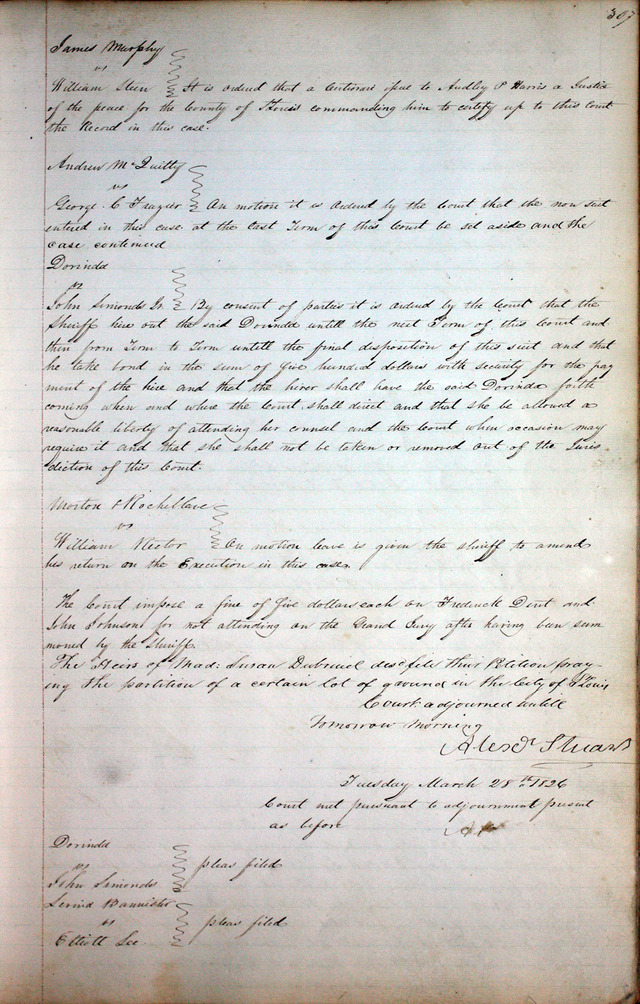 307
James Murphy
vs
William Steen It is ordered that a Certiorari issue to Audley P Harris a Justice
of the peace for the County of St Louis commanding him to certify up to this Court
the Record in this case.
Andrew McQuitty
vs
George C Frazier On motion it is Ordered by the Court that the non suit
entered in this case at the last Term of this Court be set aside and the
case continued
Dorinda
vs
John Simonds Jr. By consent of parties it is ordered by the Court that the
Sheriff hire out the said Dorinda untill the next Term of this Court and
then from Term to Term untill the final disposition of this suit and that
he take bond in the sum of five hundred dollars with security for the pay
ment of the hire and that the hirer shall have the said Dorinda forth
coming when and where the Court shall direct and that she be allowed a
reasonable liberty of attending her counsel and the Court when occasion may
require it and that she shall not be taken or removed out of the Juris
diction of this Court.
Morton & Rochblave
vs
William Rector On motion leave is given the sheriff to amend
his return on the Execution in this case.
The Court impose a fine of five dollars each on Frederick Dent and
John Johnson for not attending on the Grand Jury after having been sum
moned by the Sheriff.
The Heirs of Mad: Susan Dubreuil decd file their Petition pray-
ing the partition of a certain lot of ground in the City of St Louis
Court adjourned untill
Tomorrow morning
Alexdr Stuart
Tuesday March 28th 1826
Court met pursuant to adjournment present
as before
Dorinda
vs pleas filed
John Simonds
Bannister
vs pleas filed
Elliott Lee